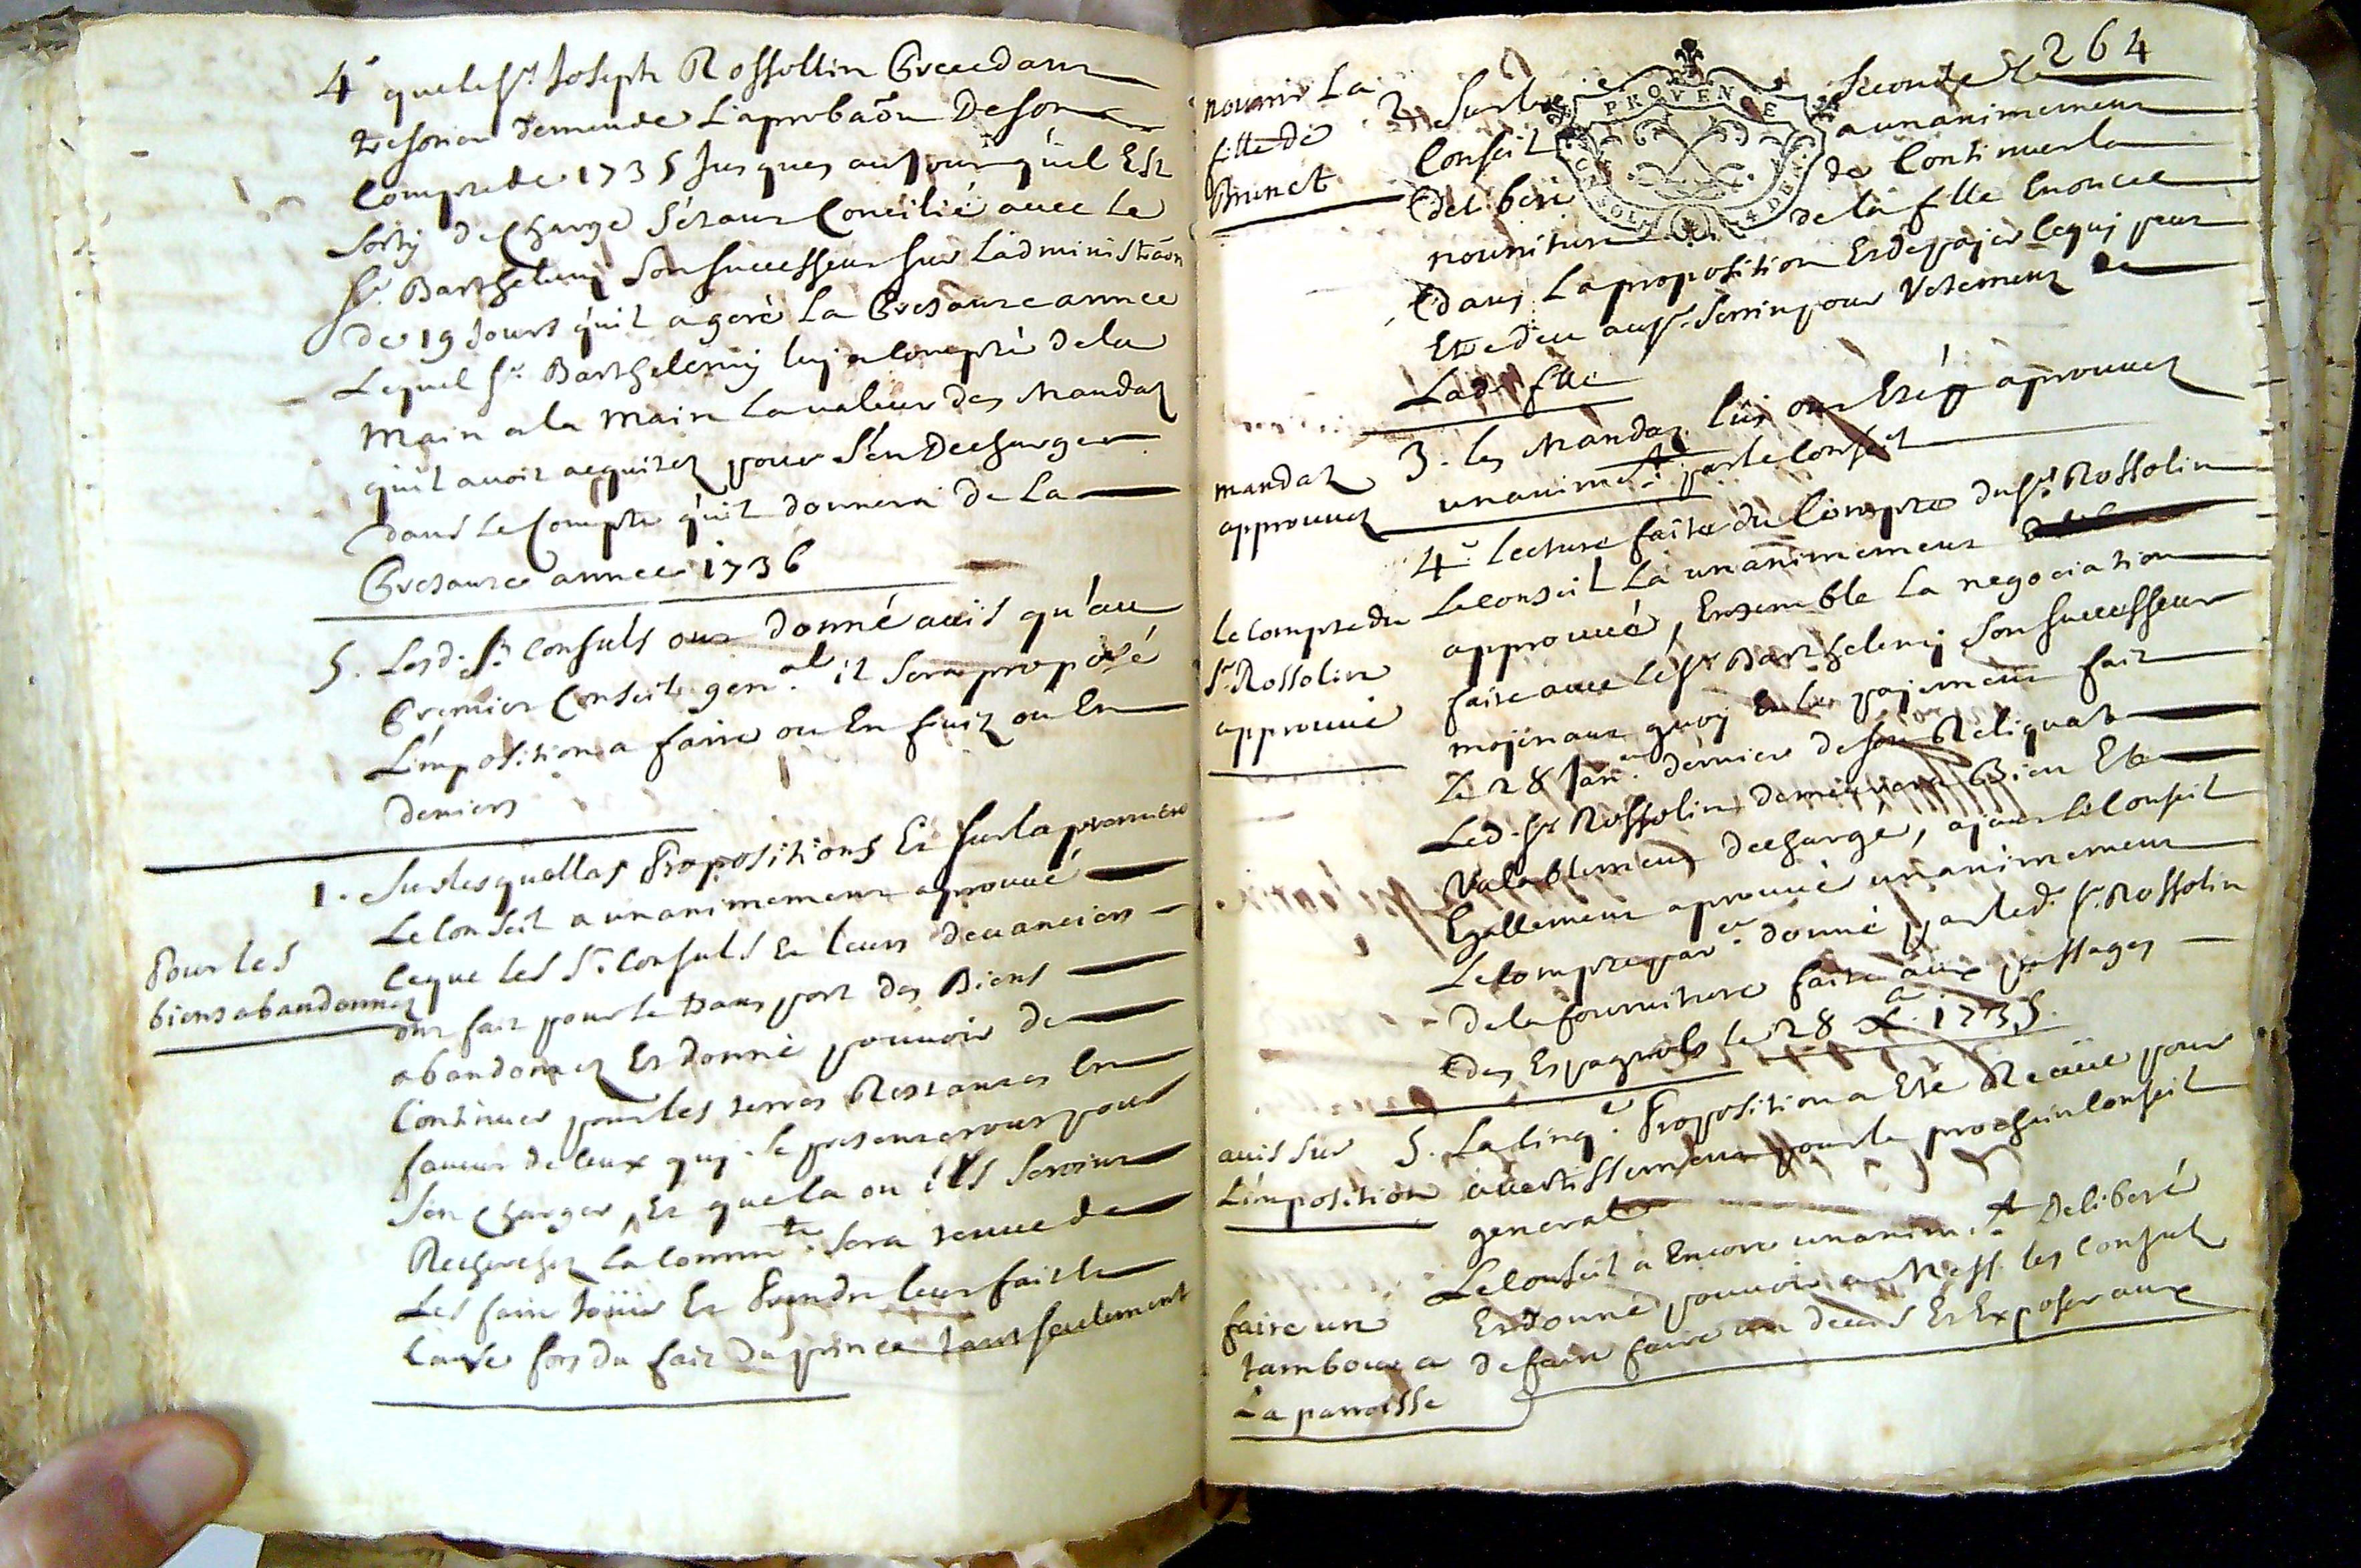 4° que le sr. Joseph Rossollin Precedant
tresorier demende L'aprobaõn De son
Compte de 1735 Jusques au jour qu'il Est
Sorty de Charge S'étant Concilié avec Le
sr. Barthelemy Son Successeur sur L'administraõn
de 19 Jours quil a geré La Presante annee
Lequel sr. Barthelemy luy a Compté de la
Main a la Main La valeur des Mandatz
quil avoit acquitez pour S'en Decharger
dans Le Compte quil donnera De La
Presante année 1736
5. Lesd. srs Consuls ont donné avis qu'au
Premier Conseil gen.al il Sera proposé
L'imposition a faire ou En fruitz ou En
deniers
1. Sur lesquelles Propositions Et sur la premiere
Le Conseil a unanimement aprouvé
Pour les
biens abandonnez
Ceque les Srs Consuls Et leurs devanciers
ont fait pour le transport des Biens
abandonnez Et donné pouvoir de
Continuer pour les terres Restantes En
faveur de Ceux quy Se presenteront pour
S'en Charger, Et que la ou ils Seroient
Recherchez La Commté. Sera tenue de
Les faire Jouir Et Prendre leur fait Et
Cause fors du fait Du prince tant seulement
264
nourrir La
fille de
Brunet
PROVENCE
2. Sur La Seconde Le
Conseil a unanimement
deliberé de Continuer la
nourriture de la fille Enoncee
dans La proposition Et de payer Ce qui peut
Etre deu au sr. Serrin pour Vetement de
Lad. fille
mandatz
approuvez
3. les Mandatz lûs ont Eté aprouvez
unanimt. par le Conseil
le Compte du
sr. Rossolin
approuvé
4° Lecture faite du Compte du sr. Rossolin
Le Conseil La unanimement
approuvé, Ensemble La negociation
faite avec le sr Barthelemy Son Successeur
mojenant quoy Et le pajement fait
Le 28 Janer. dernier de son Reliquat
Led. sr Rossolin demeurera Bien Et
Valablement dechargé, ajant le Conseil
Egallement aprouvé unanimement
Le Compte par er. donné par led. sr. Rossolin
de la fourniture faite aux passages
des Espagnols le 28 1735.
avis sur
L'imposition
5. La Cinqe. Proposition a Eté Receüe pour
avertissement pour le prochain Conseil
general
Le Conseil a Encore unanimt. Deliberé
faire un
tambour a
La parroisse
Et donné pouvoir a Mess. les Consuls
de faire faire un Et Exposer aux